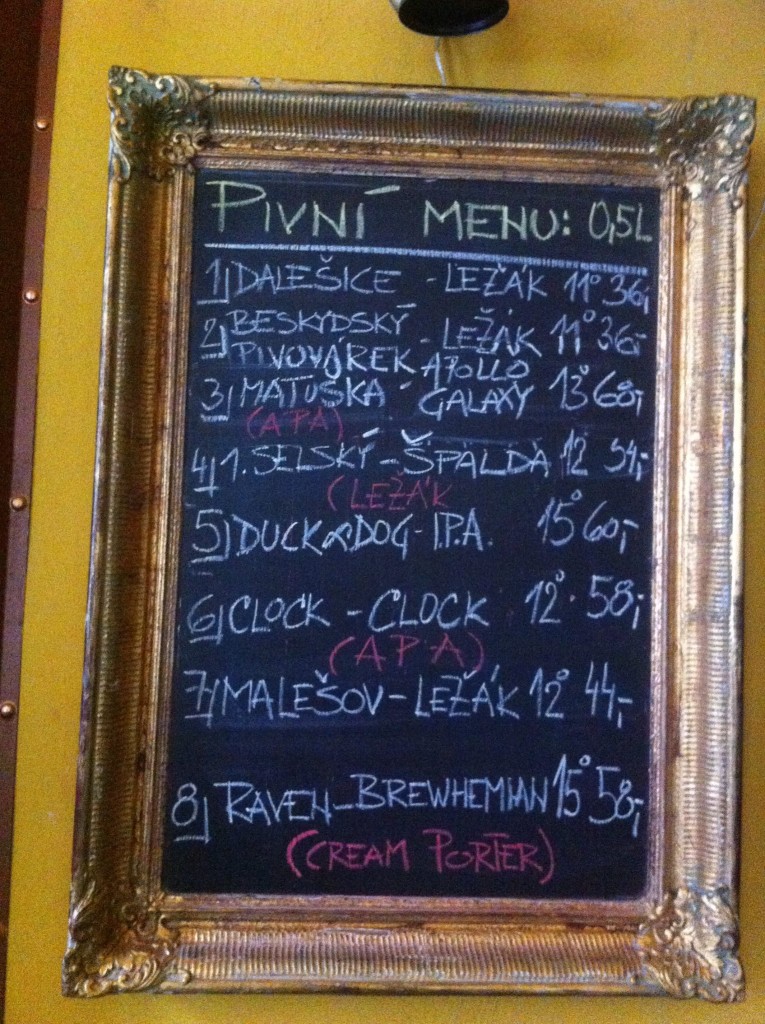 PIVNÍ MENU: 0,5L
1) DALEŠICE - LEŽÁK 11° 36,-
2) BESKYDSKÝ PIVOVÁREK - LEŽÁK 11° 36,-
3) MATUŠKA - APOLLO GALAXY 13° 68,-
(APA)
4) 1. SELSKÝ - ŠPALDA 12 54,-
(LEŽÁK
5) DUCK & DOG - I.P.A. 15° 60,-
6) CLOCK - CLOCK 12° 58,-
(APA)
7) MALEŠOV - LEŽÁK 12° 44,-
8) RAVEN - BREWHEMIAN 15° 58,-
(CREAM PORTER)